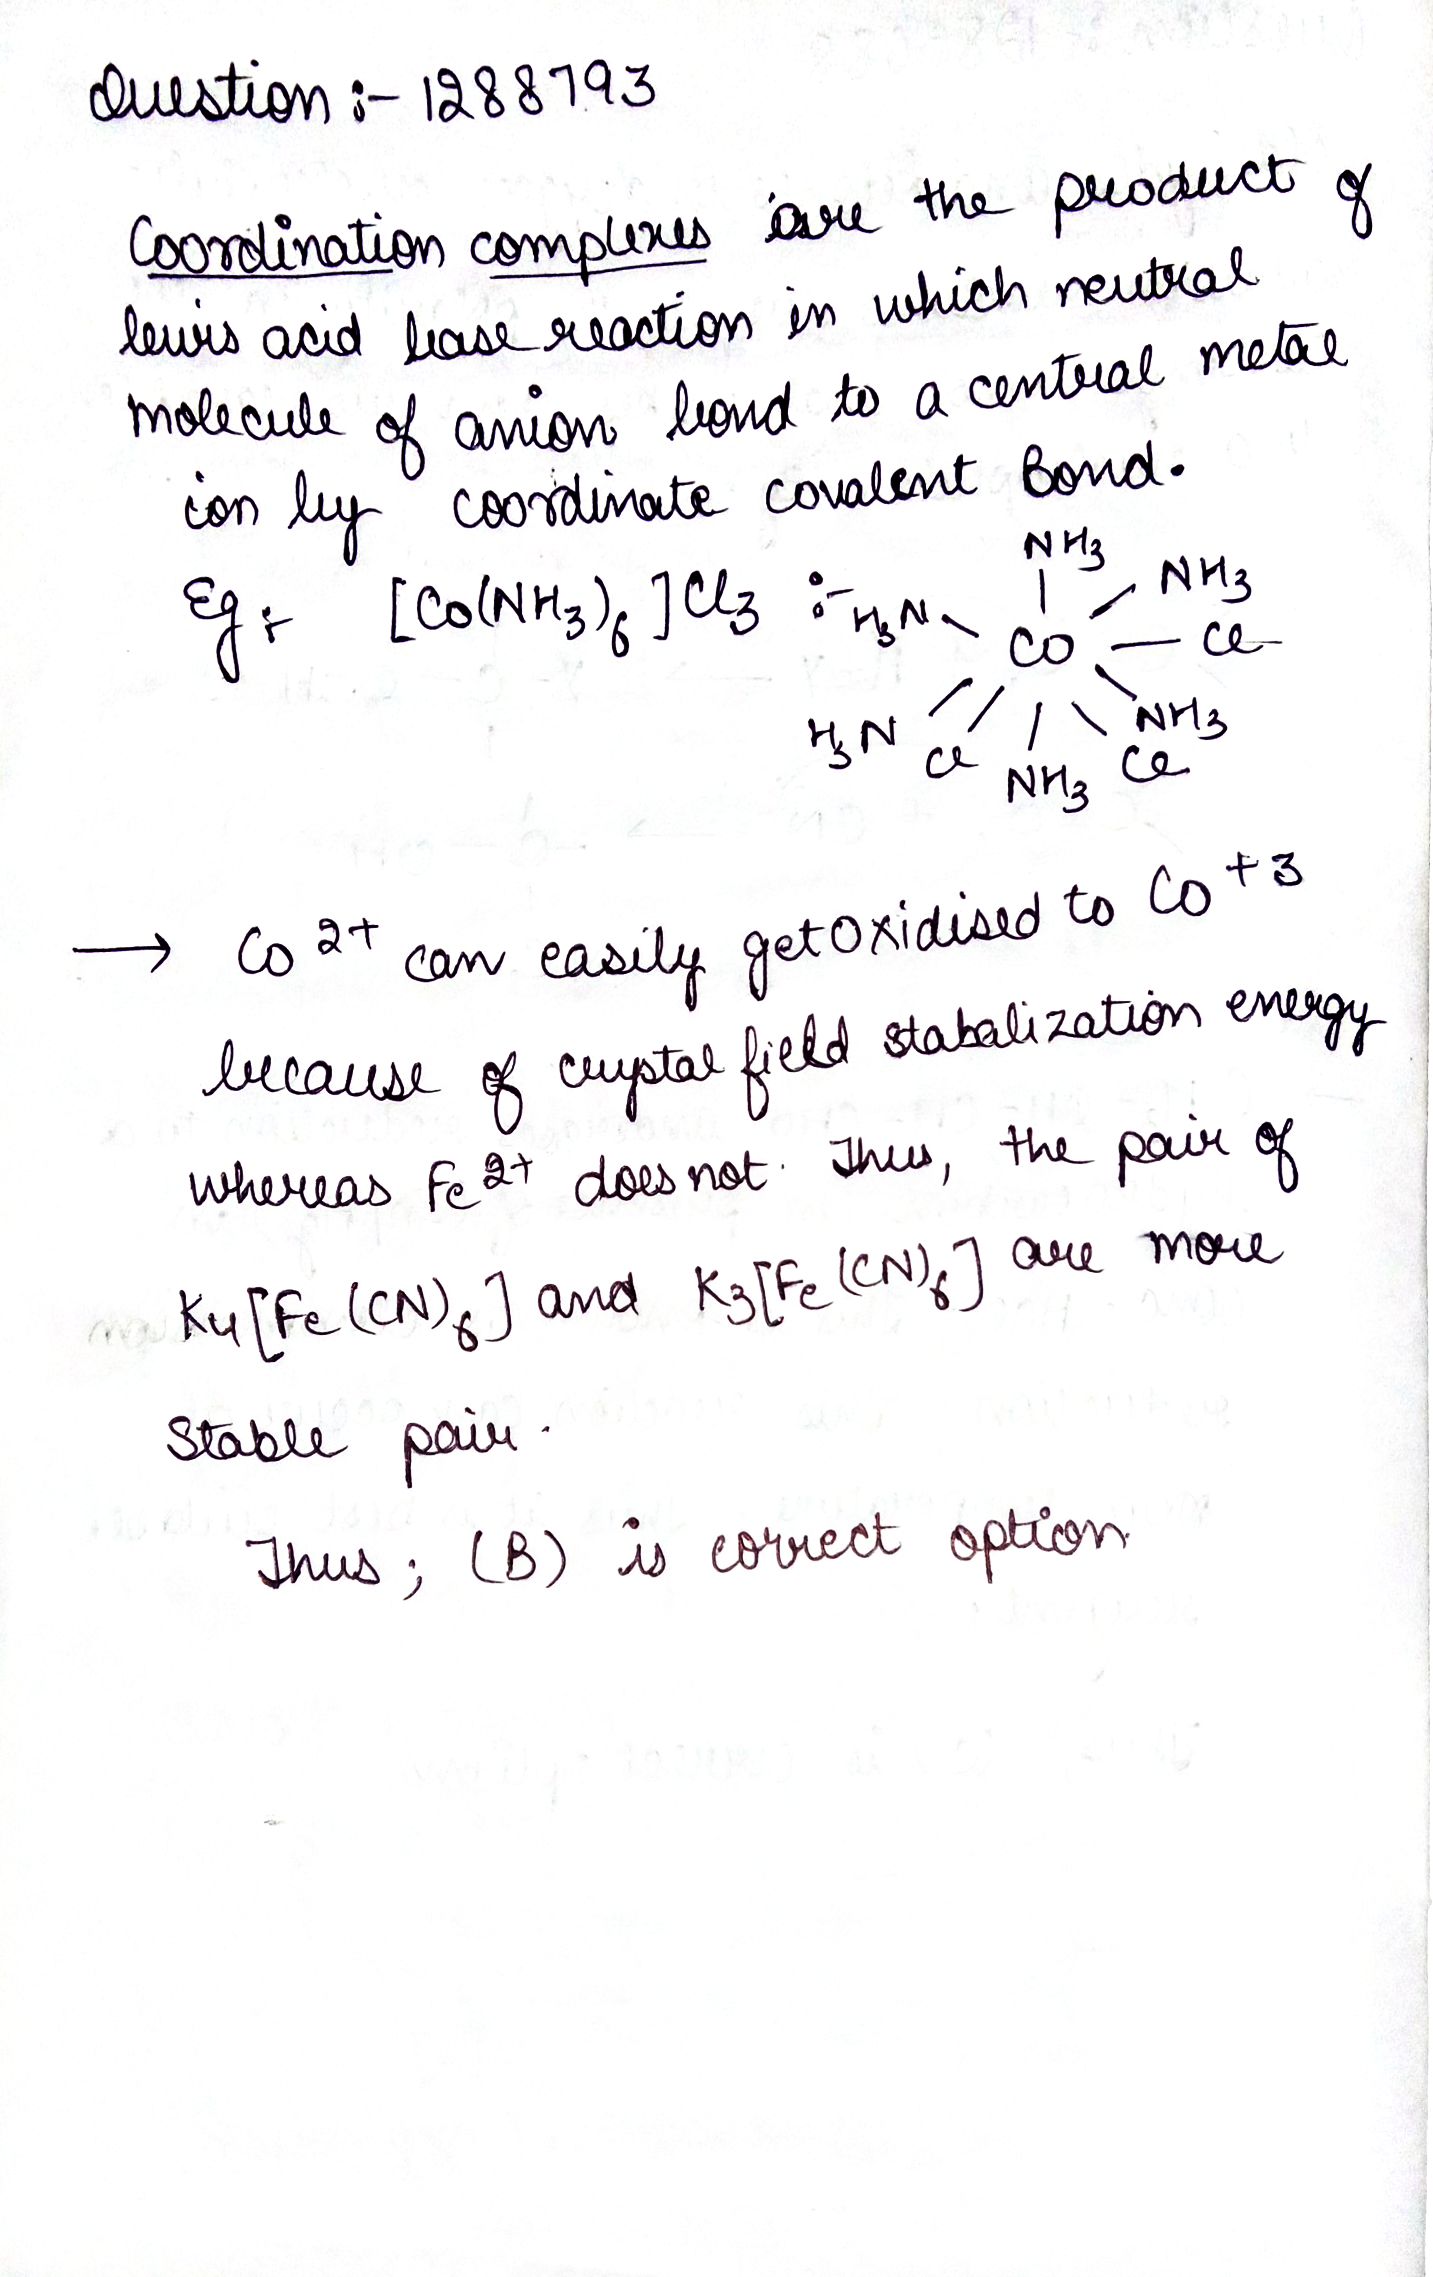 Question :- 1288793
Coordination complexes are the product of
lewis acid base reaction in which neutral
molecule of anion bond to a central metal
ion by coordinate covalent Bond.
Eg :- [Co(NH3)6]Cl3 :-
NH3
H3N NH3
CO Cl
H3N Cl NH3
NH3 Cl
→ Co 2+ can easily get oxidised to Co +3
because of crystal field stabalization energy
whereas Fe 2+ does not. Thus, the pair of
K4[Fe(CN)6] and K3[Fe(CN)6] are more
Stable pair.
Thus ; (B) is correct option.